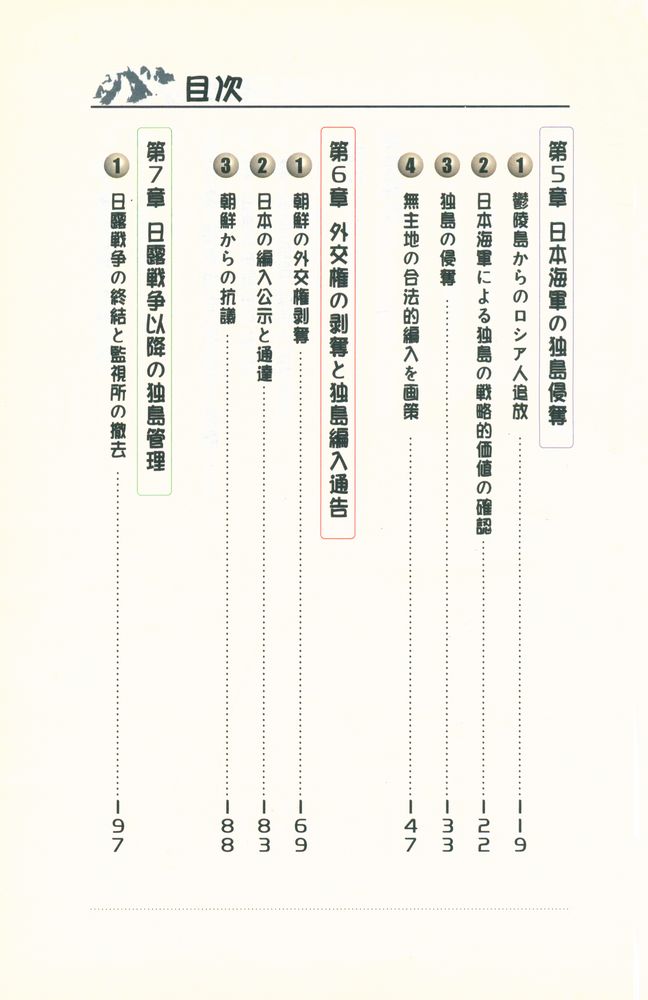 目次
第5章 日本海軍の独島侵奪
1 鬱陵島からのロシア人追放 …… 119
2 日本海軍による独島の戦略的価値の確認 …… 122
3 独島の侵奪 …… 133
4 無主地の合法的編入を画策 …… 147
第6章 外交権の剥奪と独島編入通告
1 朝鮮の外交権剥奪 …… 169
2 日本の編入公示と通達 …… 183
3 朝鮮からの抗議 …… 188
第7章 日露戦争以降の独島管理
1 日露戦争の終結と監視所の撤去 …… 197